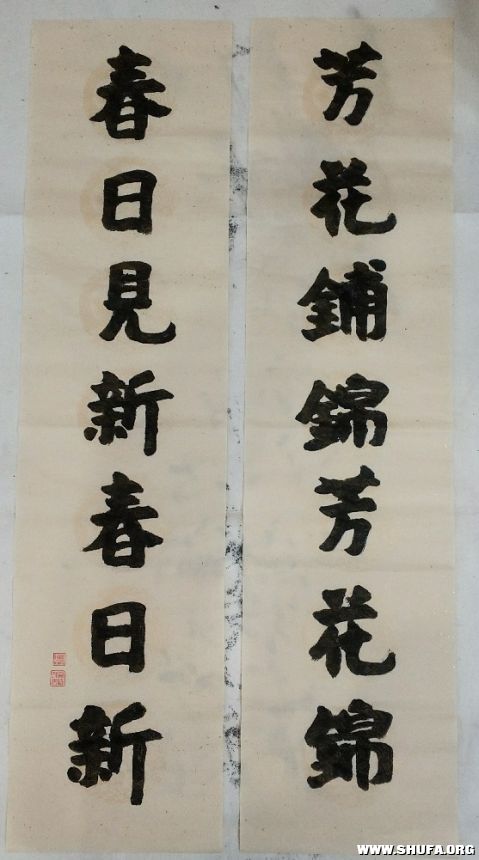 芳花鋪錦芳花錦
春日見新春日新
WWW.SHUFA.ORG